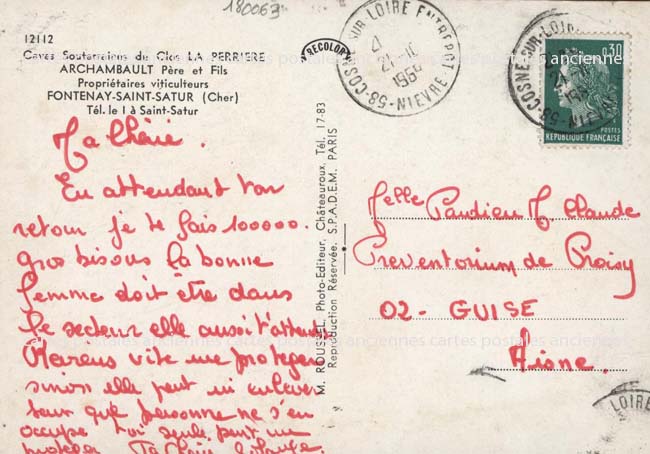 180063
12112
Caves Souterraines du Clos LA PERRIERE
ARCHAMBAULT Père et Fils
Propriétaires viticulteurs
FONTENAY-SAINT-SATUR (Cher)
Tél. le 1 à Saint-Satur
Ma chérie.
En attendant ton
retour je te fais 100000.
gros bisous la bonne
femme doit être dans
le secteur elle aussi t'attend
Reviens vite me protéger
sinon elle peut m'enlever
sans que personne ne s'en
occupe toi seule peut me
protéger
M. ROUSSEL, Photo-Editeur, Châteauroux, Tél. 17-83
Reproduction Réservée. S.P.A.D.E.M. PARIS
COSNE-SUR-LOIRE ENTREPOT
21-10
58-NIEVRE
COSNE-SUR-LOIRE
58-NIEVRE
0,30
POSTES
REPUBLIQUE FRANÇAISE
Melle Pandieu M. Claude
Preventorium de Proisy
02 - GUISE
Aisne.
LOIRE
cartes postales anciennes cartes postales anciennes